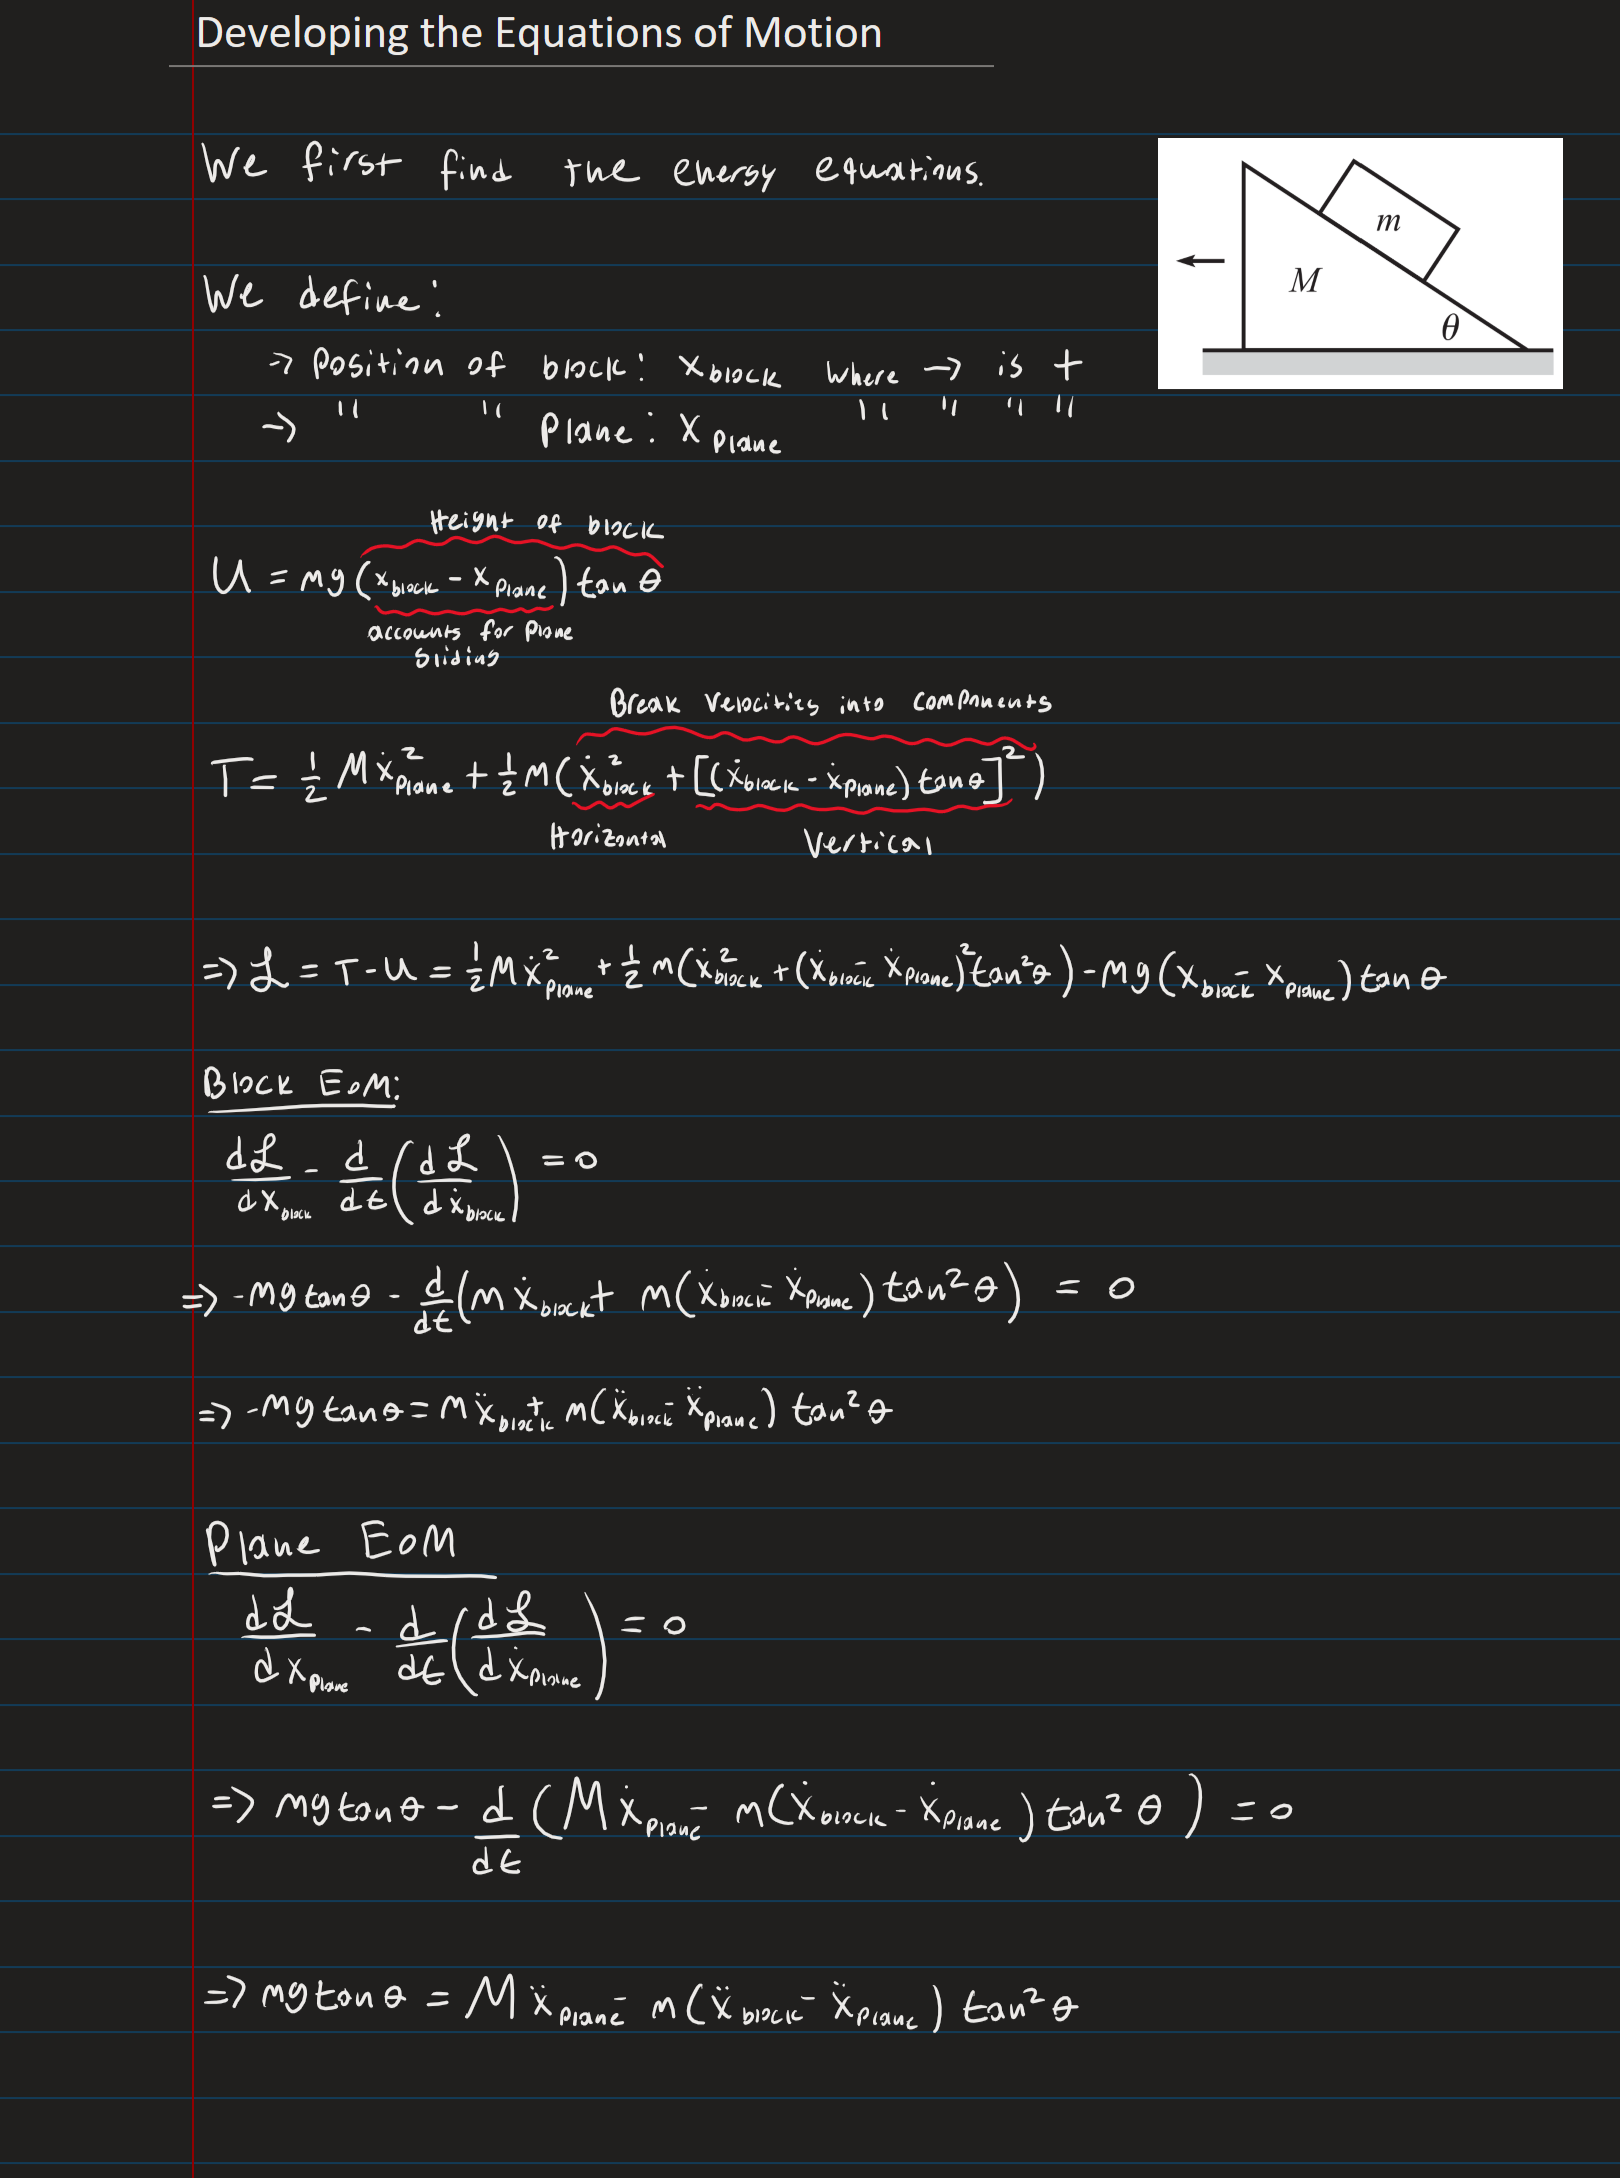 Developing the Equations of Motion
We first find the energy equations.
m
M
θ
We define:
→ Position of block: x_block where → is +
→ " " Plane: x_Plane " " " "
Height of block
U = mg(x_block - x_Plane) tan θ
accounts for plane
sliding
Break velocities into components
T = 1/2 Mẋ²_Plane + 1/2 m(ẋ²_block + [(ẋ_block - ẋ_Plane) tan θ]²)
Horizontal
Vertical
⇒ ℒ = T - U = 1/2 Mẋ²_Plane + 1/2 m(ẋ²_block + (ẋ_block - ẋ_Plane)² tan²θ) - mg(x_block - x_Plane) tan θ
Block EoM:
dℒ/dx_block - d/dt (dℒ/dẋ_block) = 0
⇒ -mg tan θ - d/dt (mẋ_block + m(ẋ_block - ẋ_Plane) tan²θ) = 0
⇒ -mg tan θ = mẍ_block + m(ẍ_block - ẍ_Plane) tan²θ
Plane EoM
dℒ/dx_Plane - d/dt (dℒ/dẋ_Plane) = 0
⇒ mg tan θ - d/dt (Mẋ_Plane - m(ẋ_block - ẋ_Plane) tan²θ) = 0
⇒ mg tan θ = Mẍ_Plane - m(ẍ_block - ẍ_Plane) tan²θ